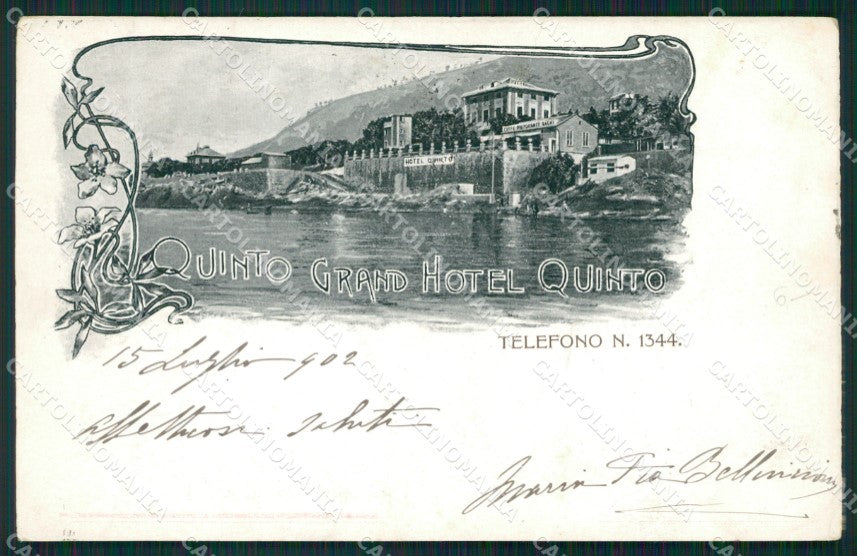 CAFFÈ RISTORANTE
HOTEL QUINTO
QUINTO GRAND HOTEL QUINTO
TELEFONO N. 1344.
15 Luglio 902
Affettuosi saluti
Maria Pia
CARTOLINOMANIA